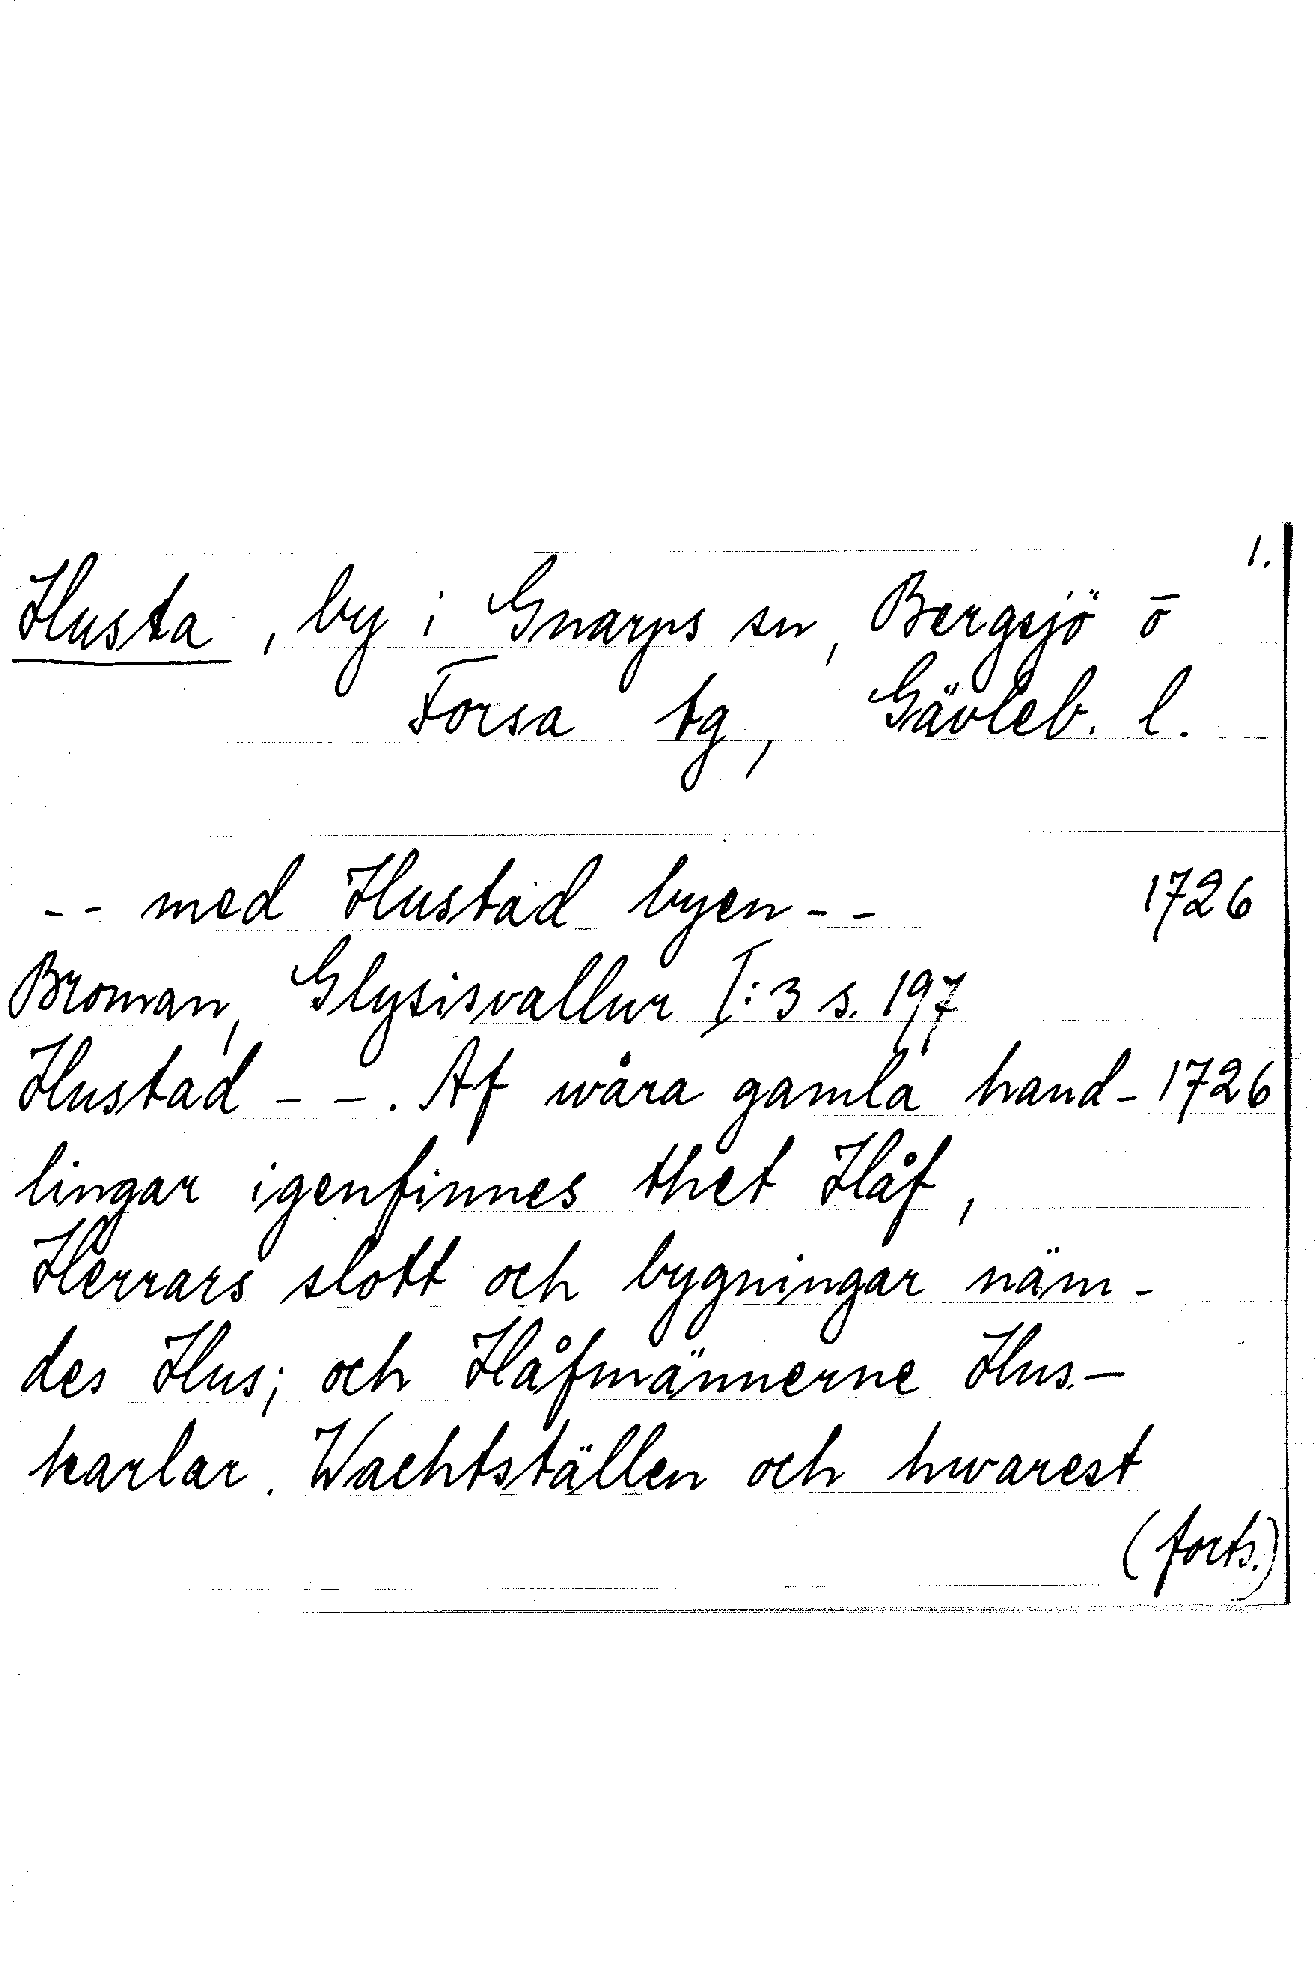 1.
Husta, by i Gnarps sn, Bergsjö ō
Forsa tg, Gävleb. l.
-- med Hustad byen -- 1726
Broman, Glysisvallur I:3 s. 197
Hustad - -. Af wåra gamla hand- 1726
lingar igenfinnes thet Håf,
Herrars slott och bygningar näm-
des Hus; och Håfmännerne Hus-
karlar. Wachtställen och hwarest
(forts.)